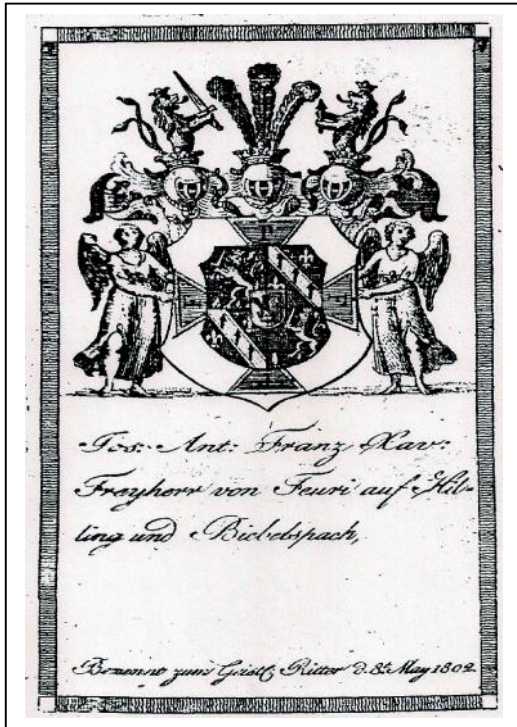 Jos: Ant: Franz Xav:
Freyherr von Feuri auf Hil-
ling und Biebelspach,
Benennt zum Geistl: Ritter d. 8t May 1802